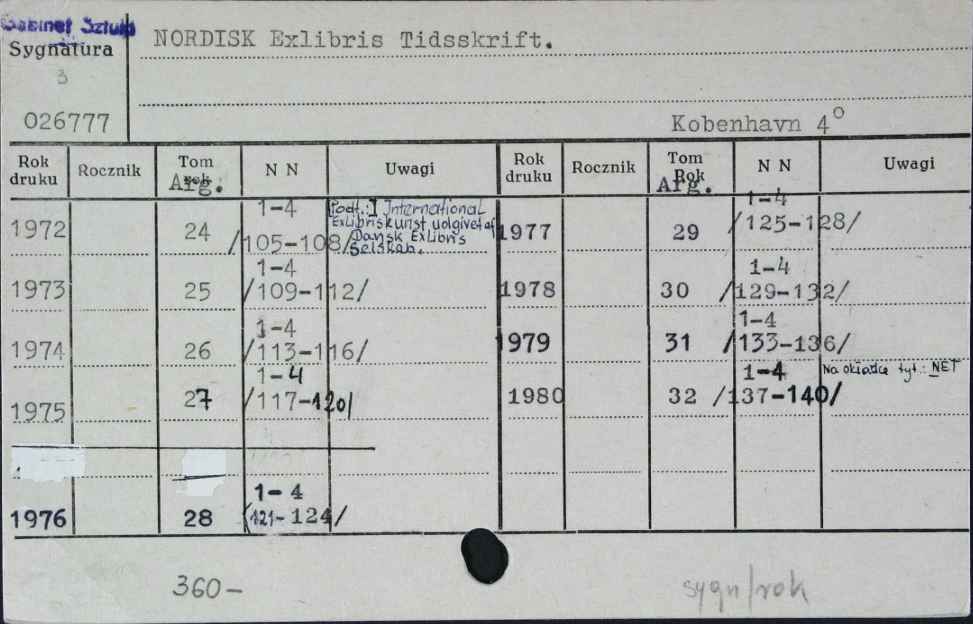 Gabinet Sztuki
Sygnatura
3
026777
NORDISK Exlibris Tidsskrift.
Kobenhavn 4°
Rok druku Rocznik Tom Arg. N N Uwagi Rok druku Rocznik Tom Rok Arg. N N Uwagi
1972 24 1-4 /105-108/ Podt.: I International
Exlibriskunst udgivet af
Dansk Exlibris
Selskab.
1977 29 1-4 /125-128/
1973 25 1-4 /109-112/ 1978 30 1-4 /129-132/
1974 26 1-4 /113-116/ 1979 31 1-4 /133-136/
1975 27 1-4 /117-120/ 1980 32 1-4 /137-140/ Na okładce tyt.: NET
1976 28 1-4 /121-124/
360-
sygn/rok